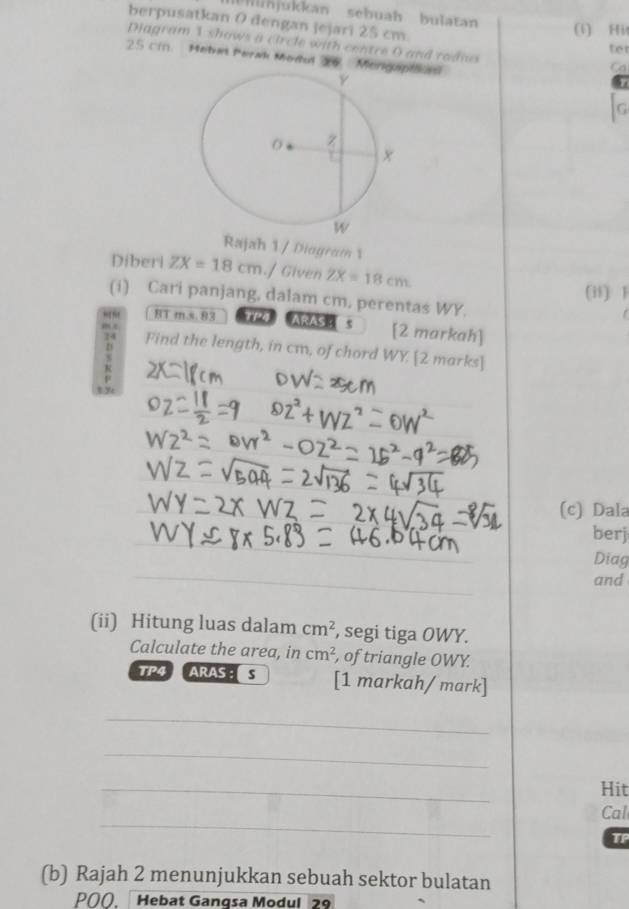 menunjukkan sebuah bulatan
berpusatkan O dengan jejari 25 cm.
Diagram 1 shows a circle with centre O and radius
25 cm. Hebat Perak Modul 26 Mengaplikasi
Y
O
Z
X
W
Rajah 1 / Diagram 1
Diberi ZX = 18 cm./ Given ZX = 18 cm.
(i) Cari panjang, dalam cm, perentas WY.
BT m.s. 83 TP4 ARAS : S [2 markah]
Find the length, in cm, of chord WY. [2 marks]
ZX=18cm OW=25cm
OZ=18/2=9 OZ²+WZ²=OW²
WZ²=OW²-OZ²=25²-9²=
WZ=√544=2√136=4√34
WY=2x WZ= 2x4√34=8√34
WY≤8x5.83=46.64cm
(ii) Hitung luas dalam cm², segi tiga OWY.
Calculate the area, in cm², of triangle OWY.
TP4 ARAS : S [1 markah/ mark]
(b) Rajah 2 menunjukkan sebuah sektor bulatan
POQ. Hebat Gangsa Modul 29
(i) Hit
ter
Ca
G
(ii)
(c) Dala
berj
Diag
and
Hit
Cal
TP